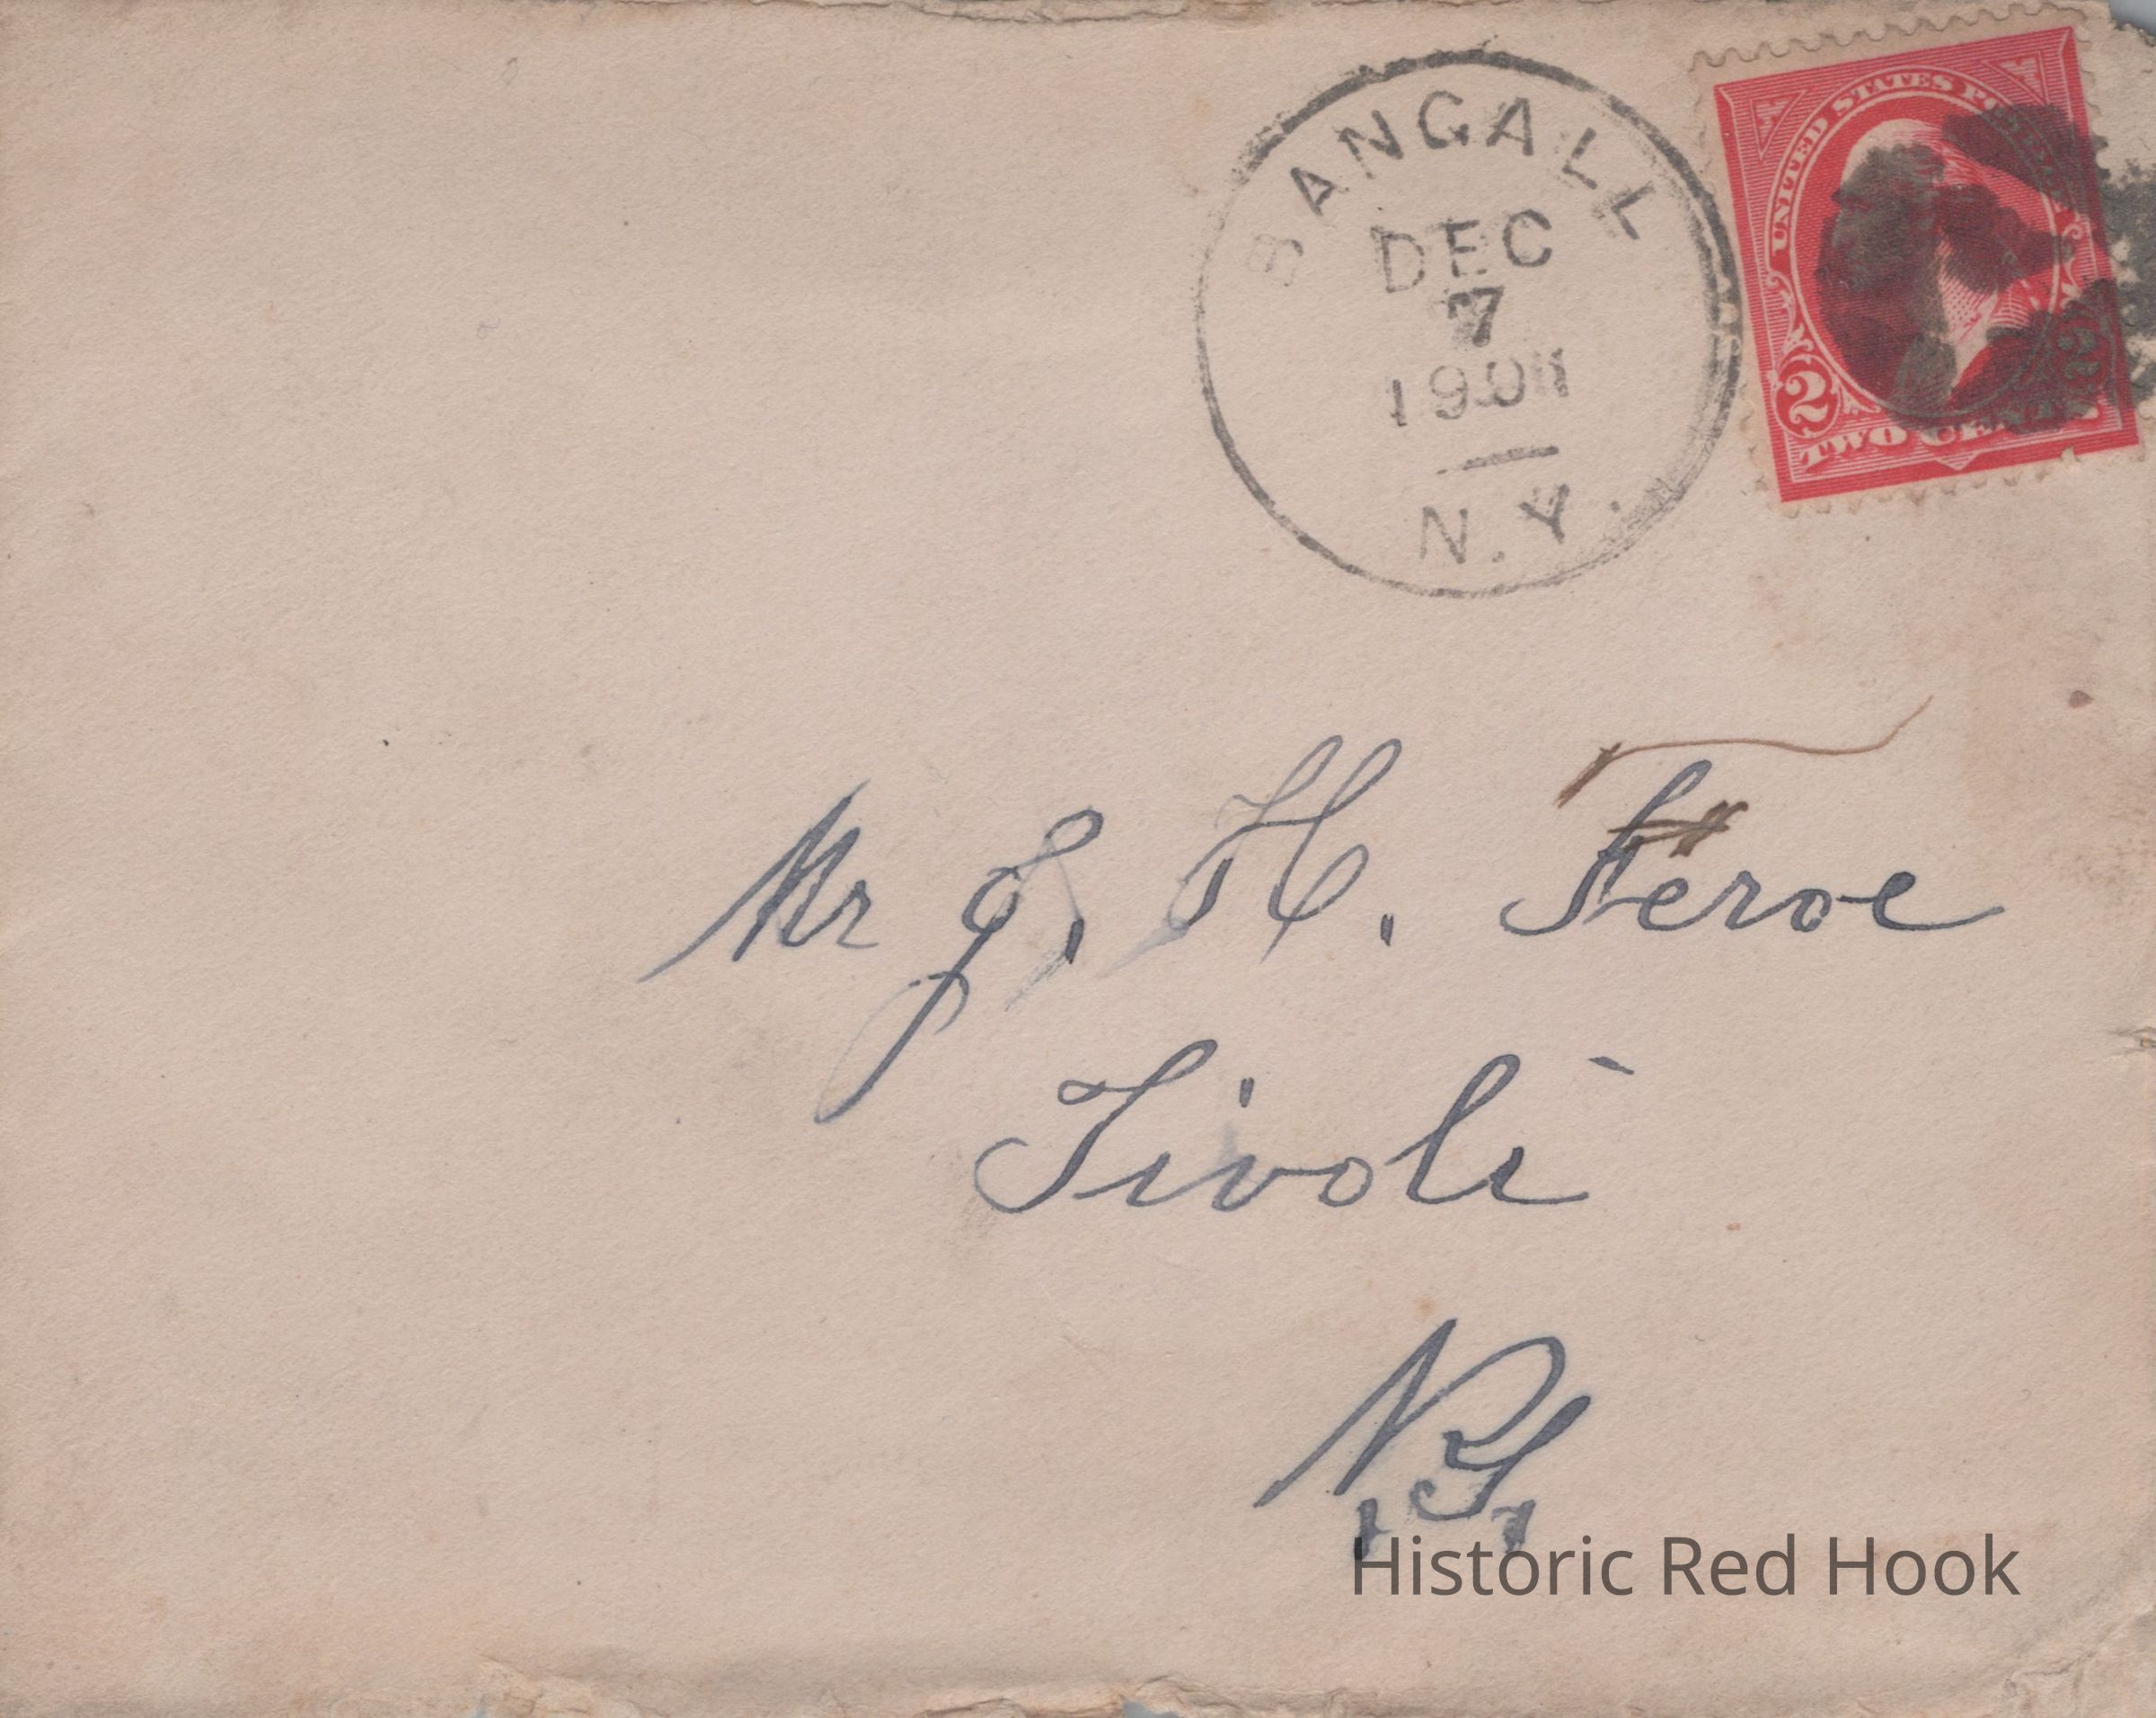 BANGALL
DEC
7
1901
N.Y.
UNITED STATES
2 2
TWO CENTS
Mr J. H. Feroe
Tivoli
N.Y.
Historic Red Hook